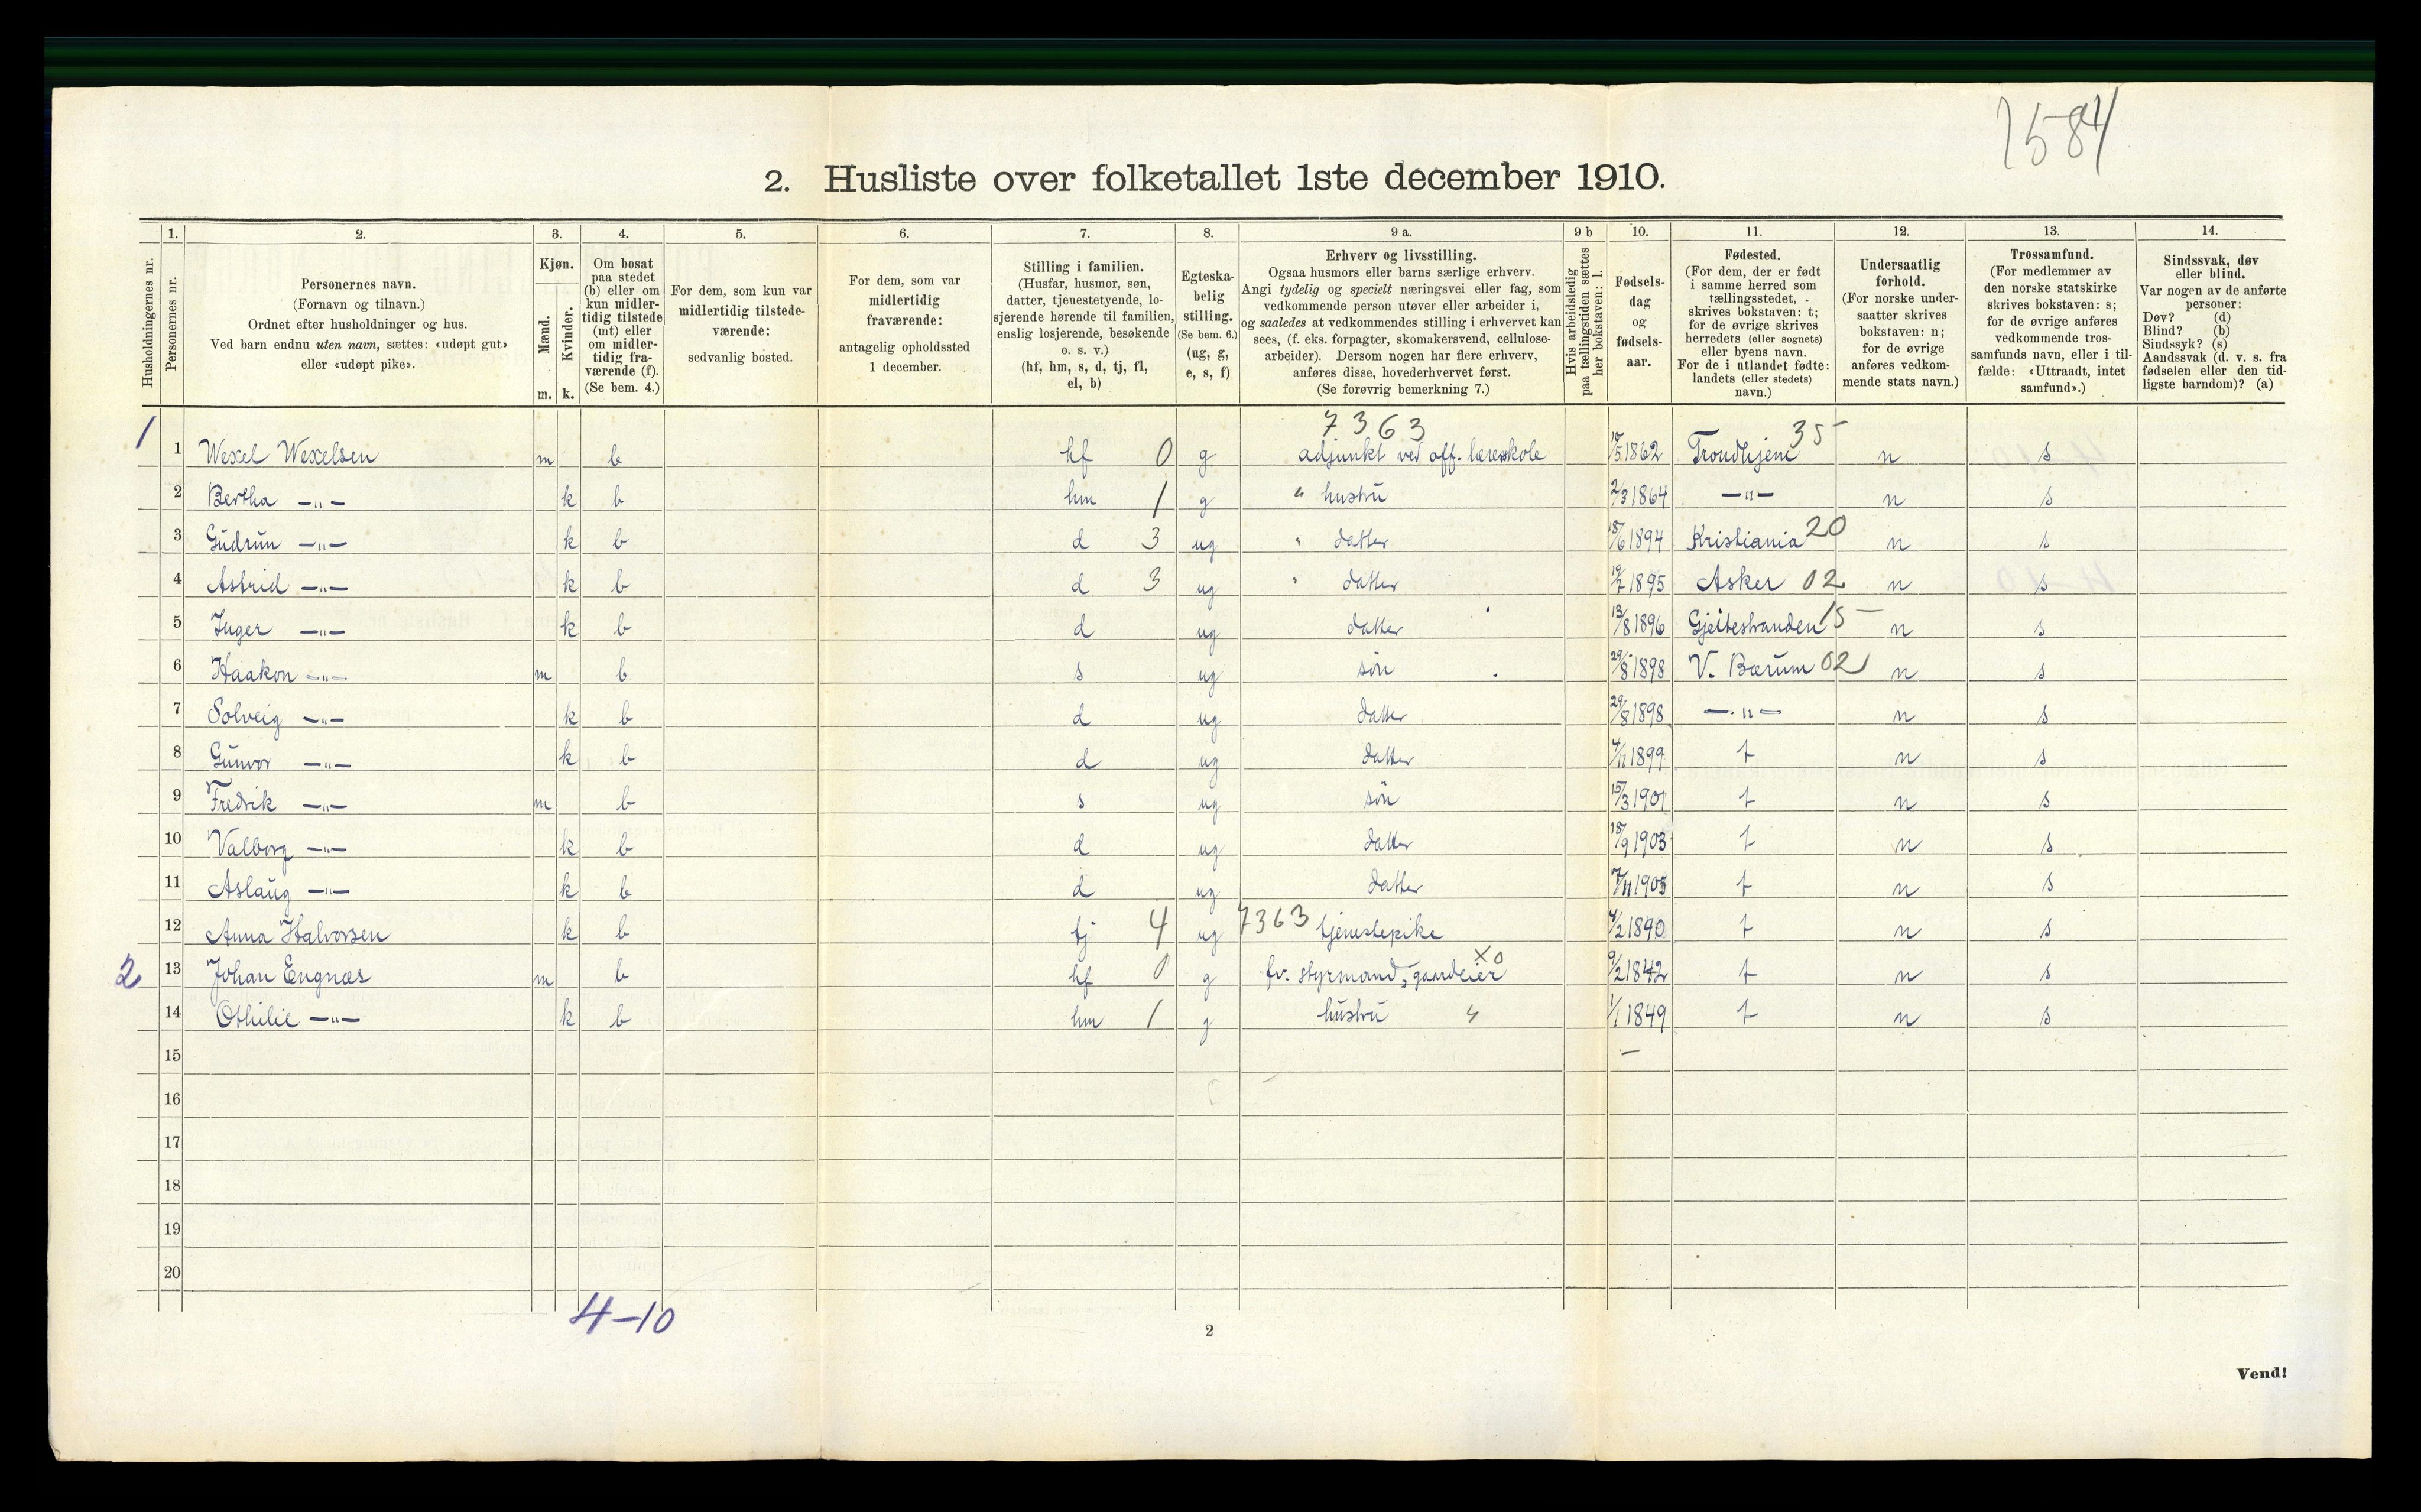 1584
2. Husliste over folketallet 1ste december 1910.
Husholdningernes nr.
1. Personernes nr.
2. Personernes navn. (Fornavn og tilnavn.) Ordnet efter husholdninger og hus. Ved barn endnu uten navn, sættes: «udøpt gut» eller «udøpt pike».
3. Kjøn. Mænd. m. Kvinder. k.
4. Om bosat paa stedet (b) eller om kun midlertidig tilstede (mt) eller om midlertidig fraværende (f). (Se bem. 4.)
5. For dem, som kun var midlertidig tilstedeværende: sedvanlig bosted.
6. For dem, som var midlertidig fraværende: antagelig opholdssted 1 december.
7. Stilling i familien. (Husfar, husmor, søn, datter, tjenestetyende, losjerende hørende til familien, enslig losjerende, besøkende o. s. v.) (hf, hm, s, d, tj, fl, el, b)
8. Egteskabelig stilling. (Se bem. 6.) (ug, g, e, s, f)
9 a. Erhverv og livsstilling. Ogsaa husmors eller barns særlige erhverv. Angi tydelig og specielt næringsvei eller fag, som vedkommende person utøver eller arbeider i, og saaledes at vedkommendes stilling i erhvervet kan sees, (f. eks. forpagter, skomakersvend, cellulosearbeider). Dersom nogen har flere erhverv, anføres disse, hovederhvervet først. (Se forøvrig bemerkning 7.)
9 b Hvis arbeidsledig paa tællingstiden sættes her bokstaven: l.
10. Fødselsdag og fødselsaar.
11. Fødested. (For dem, der er født i samme herred som tællingsstedet, skrives bokstaven: t; for de øvrige skrives herredets (eller sognets) eller byens navn. For de i utlandet fødte: landets (eller stedets) navn.)
12. Undersaatlig forhold. (For norske undersaatter skrives bokstaven: n; for de øvrige anføres vedkommende stats navn.)
13. Trossamfund. (For medlemmer av den norske statskirke skrives bokstaven: s; for de øvrige anføres vedkommende trossamfunds navn, eller i tilfælde: «Uttraadt, intet samfund».)
14. Sindssvak, døv eller blind. Var nogen av de anførte personer: Døv? (d) Blind? (b) Sindssyk? (s) Aandssvak (d. v. s. fra fødselen eller den tidligste barndom)? (a)
7363 35
1 1 Wexel Wexelsen m b hf 0 g adjunkt ved off. læreskole 10/5 1862 Trondhjem n s
2 Bertha —"— k b hm 1 g " hustru 2/3 1864 —"— n s
3 Gudrun —"— k b d 3 ug " datter 18/6 1894 Kristiania 20 n s
4 Astrid —"— k b d 3 ug " datter 19/7 1895 Asker 02 n s
5 Inger —"— k b d ug datter 13/8 1896 Gjeitestranden 15 n s
6 Haakon —"— m b s ug søn 29/8 1898 V. Bærum 02 n s
7 Solveig —"— k b d ug datter 29/8 1898 —"— n s
8 Gunvor —"— k b d ug datter 4/11 1899 t n s
9 Fredrik —"— m b s ug søn 15/3 1901 t n s
10 Valborg —"— k b d ug datter 18/9 1903 t n s
11 Aslaug —"— k b d ug datter 7/11 1905 t n s
12 Anna Halvorsen k b tj 4 ug 7363 tjenestepike 4/2 1890 t n s
2 13 Johan Engnæs m b hf 0 g fv. styrmand, gaardeier x0 9/2 1842 t n s
14 Othilie —"— k b hm 1 g hustru " 1/1 1849 t n s
15
16
17
18
19
20
4-10
2
Vend!